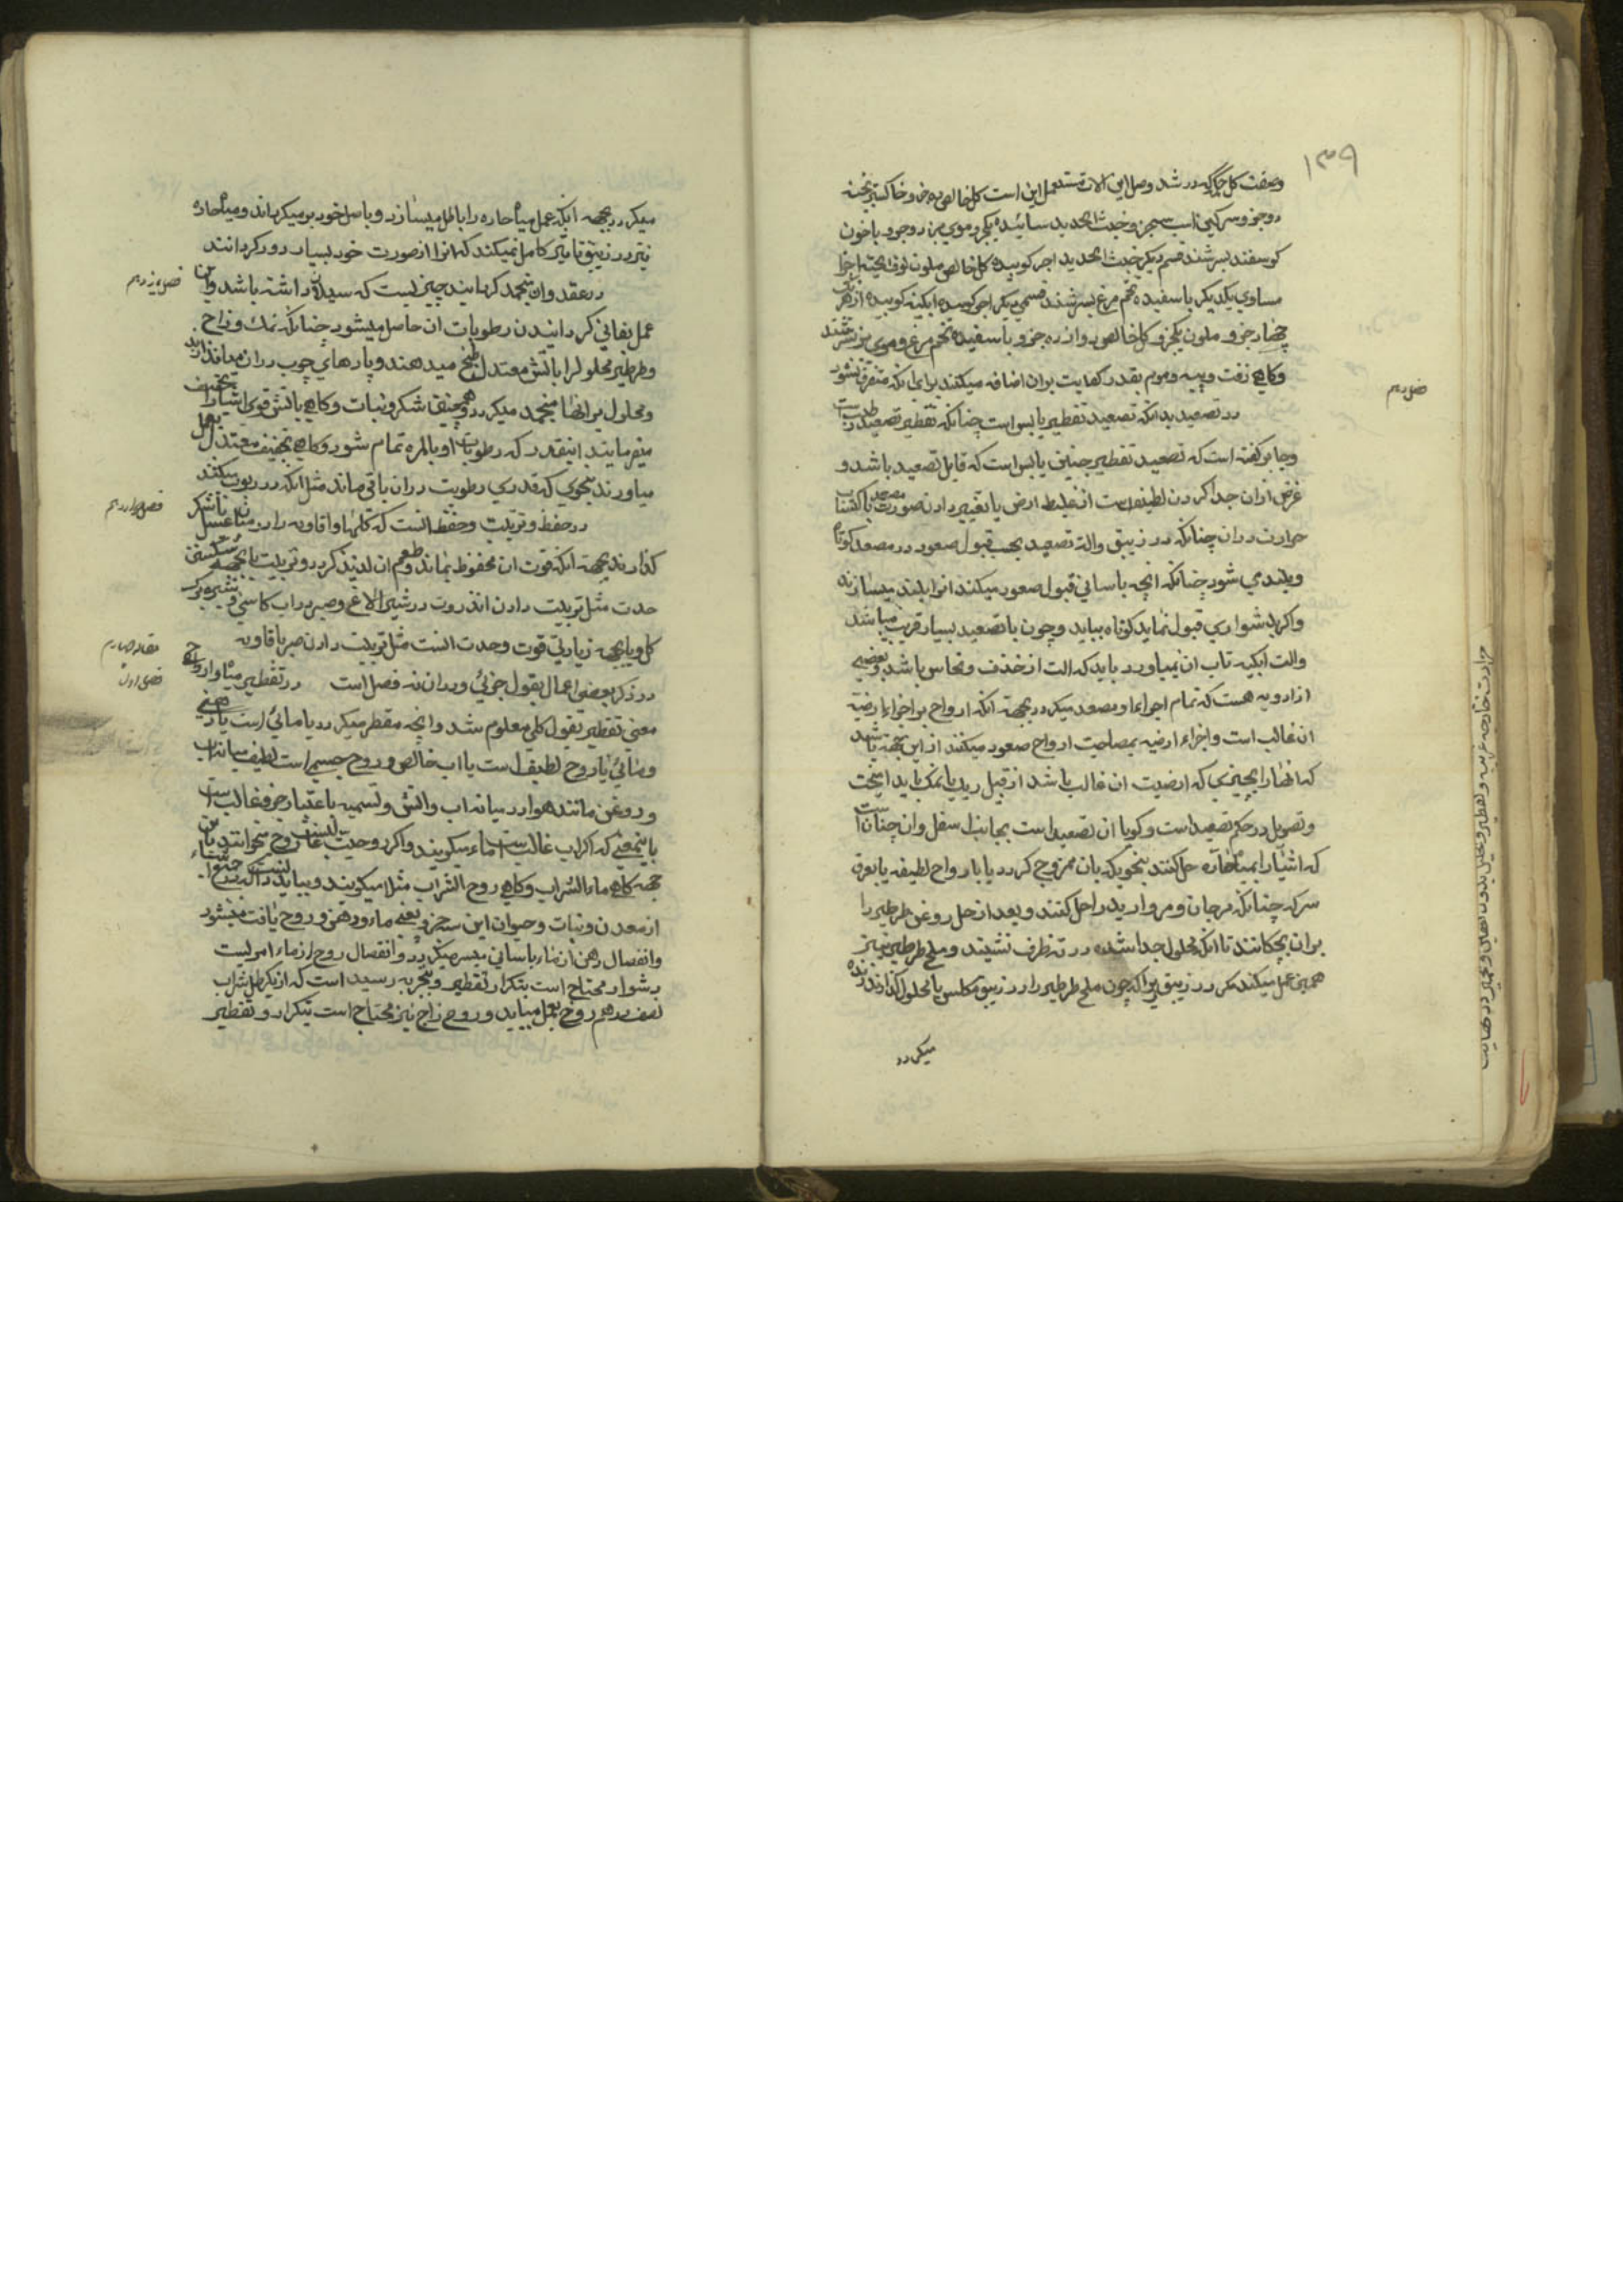 ۱۳۹
وصفت کل حکما که در شد وصل این الات مستعمل این است کل خالص ده جزو خاکستر پخته
دو جزو سرکین اسب سه جزو خبث الحدید سائیده یکجزو موی بز دو جزو با خون
کوسفند بسرشند قسم دیکر خبث الحدید اجر کوبیده کل خالص ملون نوره پخته اجزا
مساوی یکدیکر با سفیده تخم مرغ بسرشند قسمی دیکر اجر کوبیده ابکینه کوبیده از هر یک
چهار جزو ملون یکجزو کل خالص دوازده جزو با سفیده تخم مرغ و موی بز بسرشند
وکاهی زفت وپیه وموم بقدر کفایت بران اضافه میکنند برای انکه متفرق نشود
فصل دهم
در تصعید بدانکه تصعید تقطیر یابس است چنانکه تقطیر تصعید رطب است
وجابر کفته است که تصعید تقطیر چیزی یابس است که قابل تصعید باشد و
غرض ازان جدا کردن لطیف است از غلیظ ارضی یا تغییر دادن صورت مصعد یا اکتساب
حرارت دران چنانکه در زیبق والة تصعید بحسب قبول صعود در مصعد کوتاه
وبلندی شود چنانکه انچه باسانی قبول صعود میکند انرا بلند میسازند
واکر بدشواری قبول نماید کوتاه بباید وچون با تصعید بسیار قریب میباشد
والت ابکینه تاب ان نمیاورد باید که الت از خذف ونحاس باشد وبعضی
از ادویه هست که تمام اجزاءا و مصعد میکردد بجهة انکه ارواح بر اجزاء ارضیة
ان غالب است واجزاء ارضیه بمصاحبت ارواح صعود میکنند از این جهة باشد
که انها را بچیزی که ارضیت ان غالب باشد از قبیل ریک یا نمک باید امیخت
وتصویل در حکم تصعید است وکویا ان تصعید است بجانب اسفل وان چنان است
که اشیا را بمیاه حاره حل کنند بنحویکه بان ممزوج کردد یا بارواح لطیفه یا بعرق
سرکه چنانکه مرجان ومروارید را حل کنند وبعد از حل روغن طرطیر را
بران بچکانند تا انکه محلول جدا شده در ته ظرف نشیند وملح طرطیر نیز
همین عمل میکند مکر در زیبق چرا که چون ملح طرطیر را در زیبق مکلس یا محلول کذارند زنده
میکردد
حرارت خارجه غریبه وتقطیر وتحلیل بدون تعفین وتخمیر در نهایت
میکردد بجهة انکه عمل میاه حاره را باطل میسازد وباصل خود بر میکرداند ومیاه حاره
نیز در زیبق تاثیر کامل نمیکند که انرا از صورت خود بسیار دور کردانند
فصل یازدهم
در عقد وان منجمد کردانیدن چیزیست که سیلان داشته باشد واین
عمل بفانی کردانیدن رطوبات ان حاصل میشود چنانکه نمک وزاج
وطرطیر محلول را باتش معتدل طبخ میدهند وپارهای چوب دران میاندازند
ومحلول بر انها منجمد میکردد وهمچنین شکر ونبات وکاهی باتش قوی اشیا را تخفیف
میفرمایند اینقدر که رطوبات او بالمره تمام شود وکاهی تجفیف معتدل بعمل
میاورند بنحوی که قدری رطوبت دران باقی ماند مثل انکه در ربوب میکنند
فصل دوازدهم
در حفظ وتربیت وحفظ انست که کلها وافاویه را در مثل عسل یا شکر
کذارند بجهة انکه قوت ان محفوظ بماند وطعم ان لذیذ کردد وتربیت یا بجهة شکستن
حدت مثل تربیت دادن انذروت در شیر الاغ وصبر در اب کاسنی وشیره برک
کل ویا بجهة زیادتی قوت وحدت انست مثل تربیت دادن صبر با افاویه
مقاله چهارم
فصل اول
در ذکر بعضی اعمال بقول جزئی ودران نه فصل است در تقطیر میاه وارواح
معنی تقطیر بقول کلی معلوم شد وانچه مقطر میکردد یا مائی است یا دهنی
ومائی یا روح لطیف است یا اب خالص وروح جسمی است لطیف میانه اب
وروغن مانند هوا در میانه اب واتش وتسمیه باعتبار جزو غالب است
باین معنی که اکر اب غالب است ماء میکویند واکر روحیت غالبست روح میخوانند باین
جهة کاهی ماء الشراب وکاهی روح الشراب مثلا میکویند وبباید
از معدن ونبات وحیوان این سه جزو یعنی ماء ودهن وروح یافت میشود
وانفصال دهن از ماء باسانی میسر میکردد وانفصال روح از ماء امریست
دشوار محتاج است بتکرار تقطیر وبتجربه رسیده است که از یکرطل شراب
نصف درهم روح بعمل میباید وروح زاج نیز محتاج است بتکرار وتقطیر